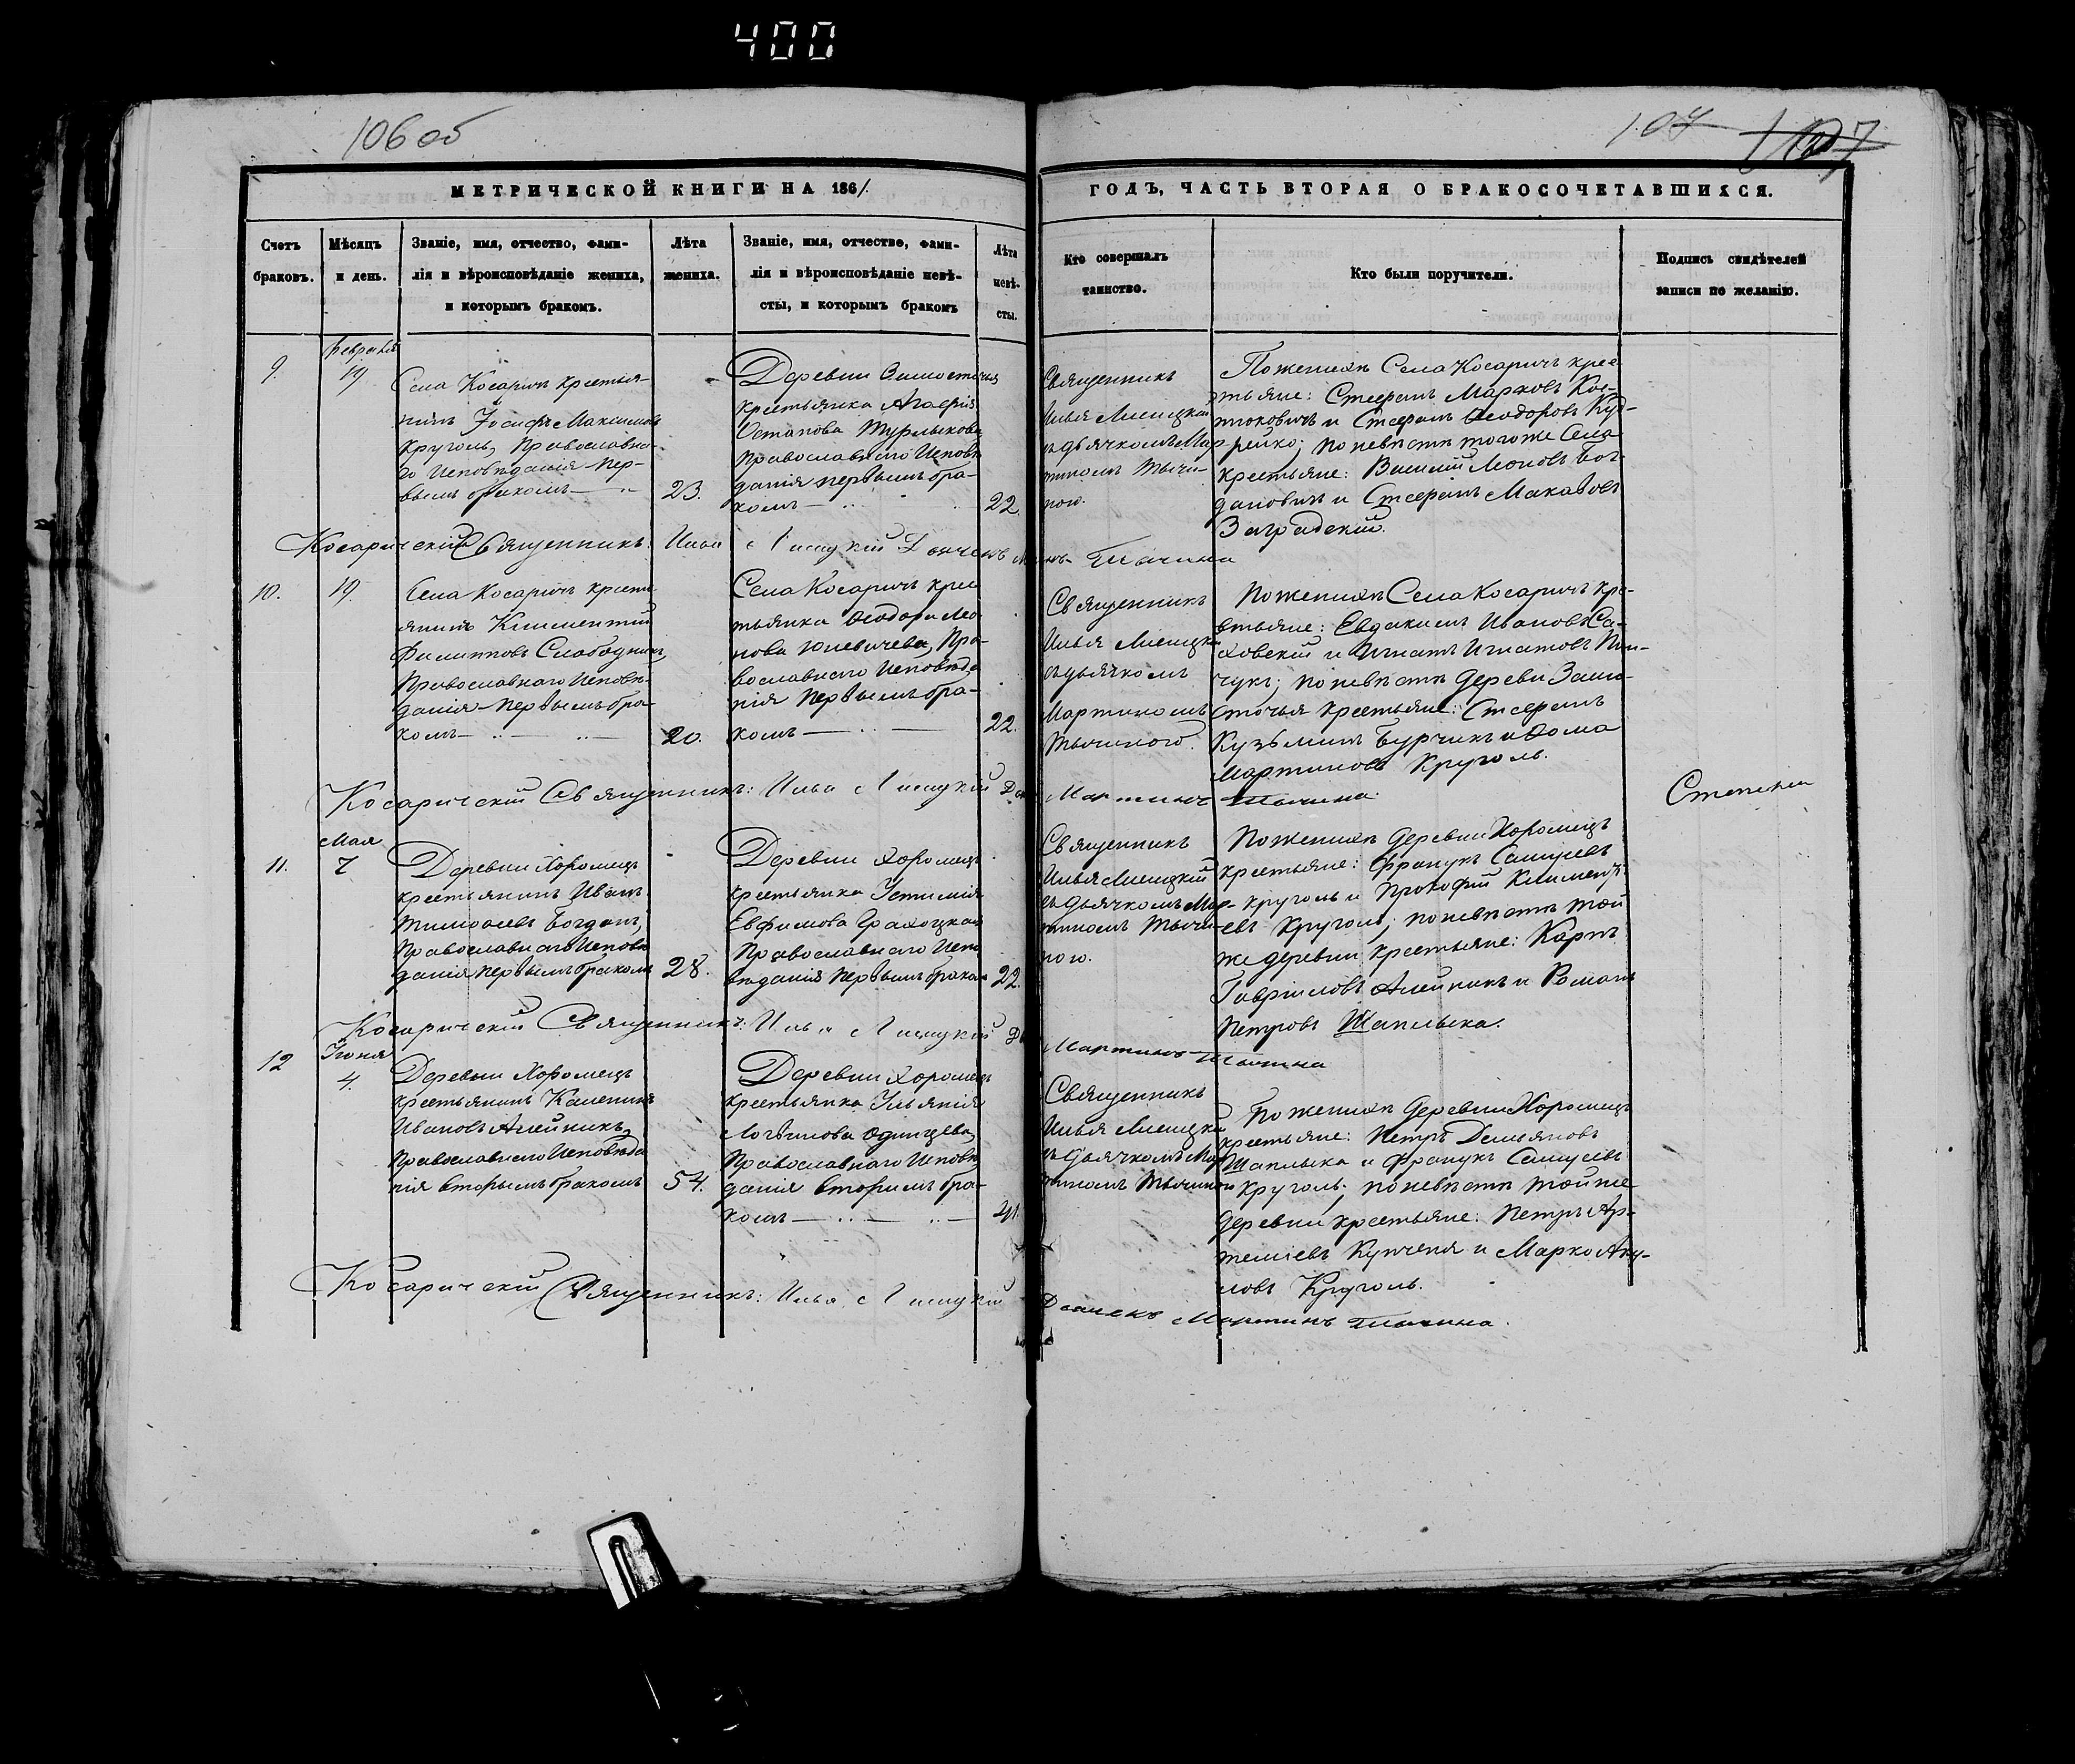 400
106 об
107
МЕТРИЧЕСКОЙ КНИГИ НА 1861
ГОДЪ, ЧАСТЬ ВТОРАЯ О БРАКОСОЧЕТАВШИХСЯ.
Счетъ
браковъ.
Мѣсяцъ
и день.
Званіе, имя, отчество, фами-
лія и вѣроисповѣданіе жениха,
и которымъ бракомъ.
Лѣта
жениха.
Званіе, имя, отчество, фами-
лія и вѣроисповѣданіе невѣ-
сты, и которымъ бракомъ
Лѣта
невѣ-
сты.
Кто совершалъ
таинство.
Кто были поручители.
Подпись свидѣтелей
записи по желанію.
9.
Февраля
19
Села Косаричъ крестія-
нинъ Іосифъ Максимовъ
Круголь, Православна-
го Исповѣданія пер-
вымъ бракомъ
23.
Деревни Замосточья
крестьянка Агафія
Остапова
Православнаго Исповѣ
данія первымъ бра-
комъ
22.
Священникъ
Илья Лисицкій
съ дьячкомъ Мар-
тиномъ Тычи-
ною.
По женихѣ Села Косаричъ крес-
тьяне: Стефанъ Марковъ Кос-
тюковичъ и Стефанъ Ѳеодоровъ Куд-
рейко; по невѣстѣ тогоже Села
крестьяне: Василій Леоновъ Бог-
дановичъ и Стефанъ Макаровъ
Заградскій.
Косаричскій Священникъ: Илья Лисицкій Дьячекъ Тычина
10.
19.
Села Косаричъ кресть
янинъ Климентій
Филипповъ Слободникъ,
Православнаго Исповѣ-
данія первымъ бра-
комъ
20.
Села Косаричъ крес
тьянка Ѳеодора Лео
нова Юневичева, Пра-
вославнаго Исповѣда
нія первымъ бра-
комъ
22.
Священникъ
Илья Лисицкій
съ дьячкомъ
Мартиномъ
Тычиною.
По женихѣ Села Косаричъ кре-
стьяне: Евдакимъ Ивановъ Са-
ховскій и Игнатъ Игнатовъ
по невѣстѣ Деревни Замо-
сточья крестьяне: Стефанъ
Кузьминъ Бурчикъ и Ѳома
Мартиновъ Круголь.
Косаричскій Священникъ: Илья Лисицкій
Мартинъ Тычина.
11.
Мая
7
Деревни Хоромецъ
крестьянинъ Иванъ
Тимоѳеевъ Богданъ,
Православнаго Исповѣ
данія первымъ бракомъ
28.
Деревни Хоромецъ
крестьянка Устинія
Евфимова Грахоцкая
Православнаго Испо
вѣданія первымъ бракомъ
22.
Священникъ
Илья Лисицкій
съ дьячкомъ Мар-
тиномъ Тычи-
ною.
По женихѣ Деревни Хоромецъ
крестьяне: Францукъ Самуилевъ
Круголь и Прокофій Климентi-
евъ Круголь; по невѣстѣ той
же деревни крестьяне: Карпъ
Гавриловъ Алейникъ и Романъ
Петровъ Шаплыка.
Косаричскій Священникъ: Илья Лисицкій
Мартинъ Тычина
12
Іюня
4.
Деревни Хоромецъ
крестьянинъ Каленикъ
Ивановъ Алейникъ,
Православнаго Исповѣда
нія вторымъ бракомъ
54.
Деревни Хоромецъ
крестьянка Ульянія
Логвинова Одинцева,
Православнаго Исповѣ
данія вторымъ бра-
комъ
41.
Священникъ
Илья Лисицкій
съ дьячкомъ Мар
тиномъ Тычиною
По женихѣ Деревни Хоромецъ
крестьяне: Петръ Демьяновъ
Шаплыка и Францукъ Самуевъ
Круголь; по невѣстѣ той же
Деревни крестьяне: Петръ Ар-
теміевъ Купченя и Марко Аку-
ловъ Круголь.
Косаричскій Священникъ: Илья Лисицкій
Дьячекъ Мартинъ Тычина.